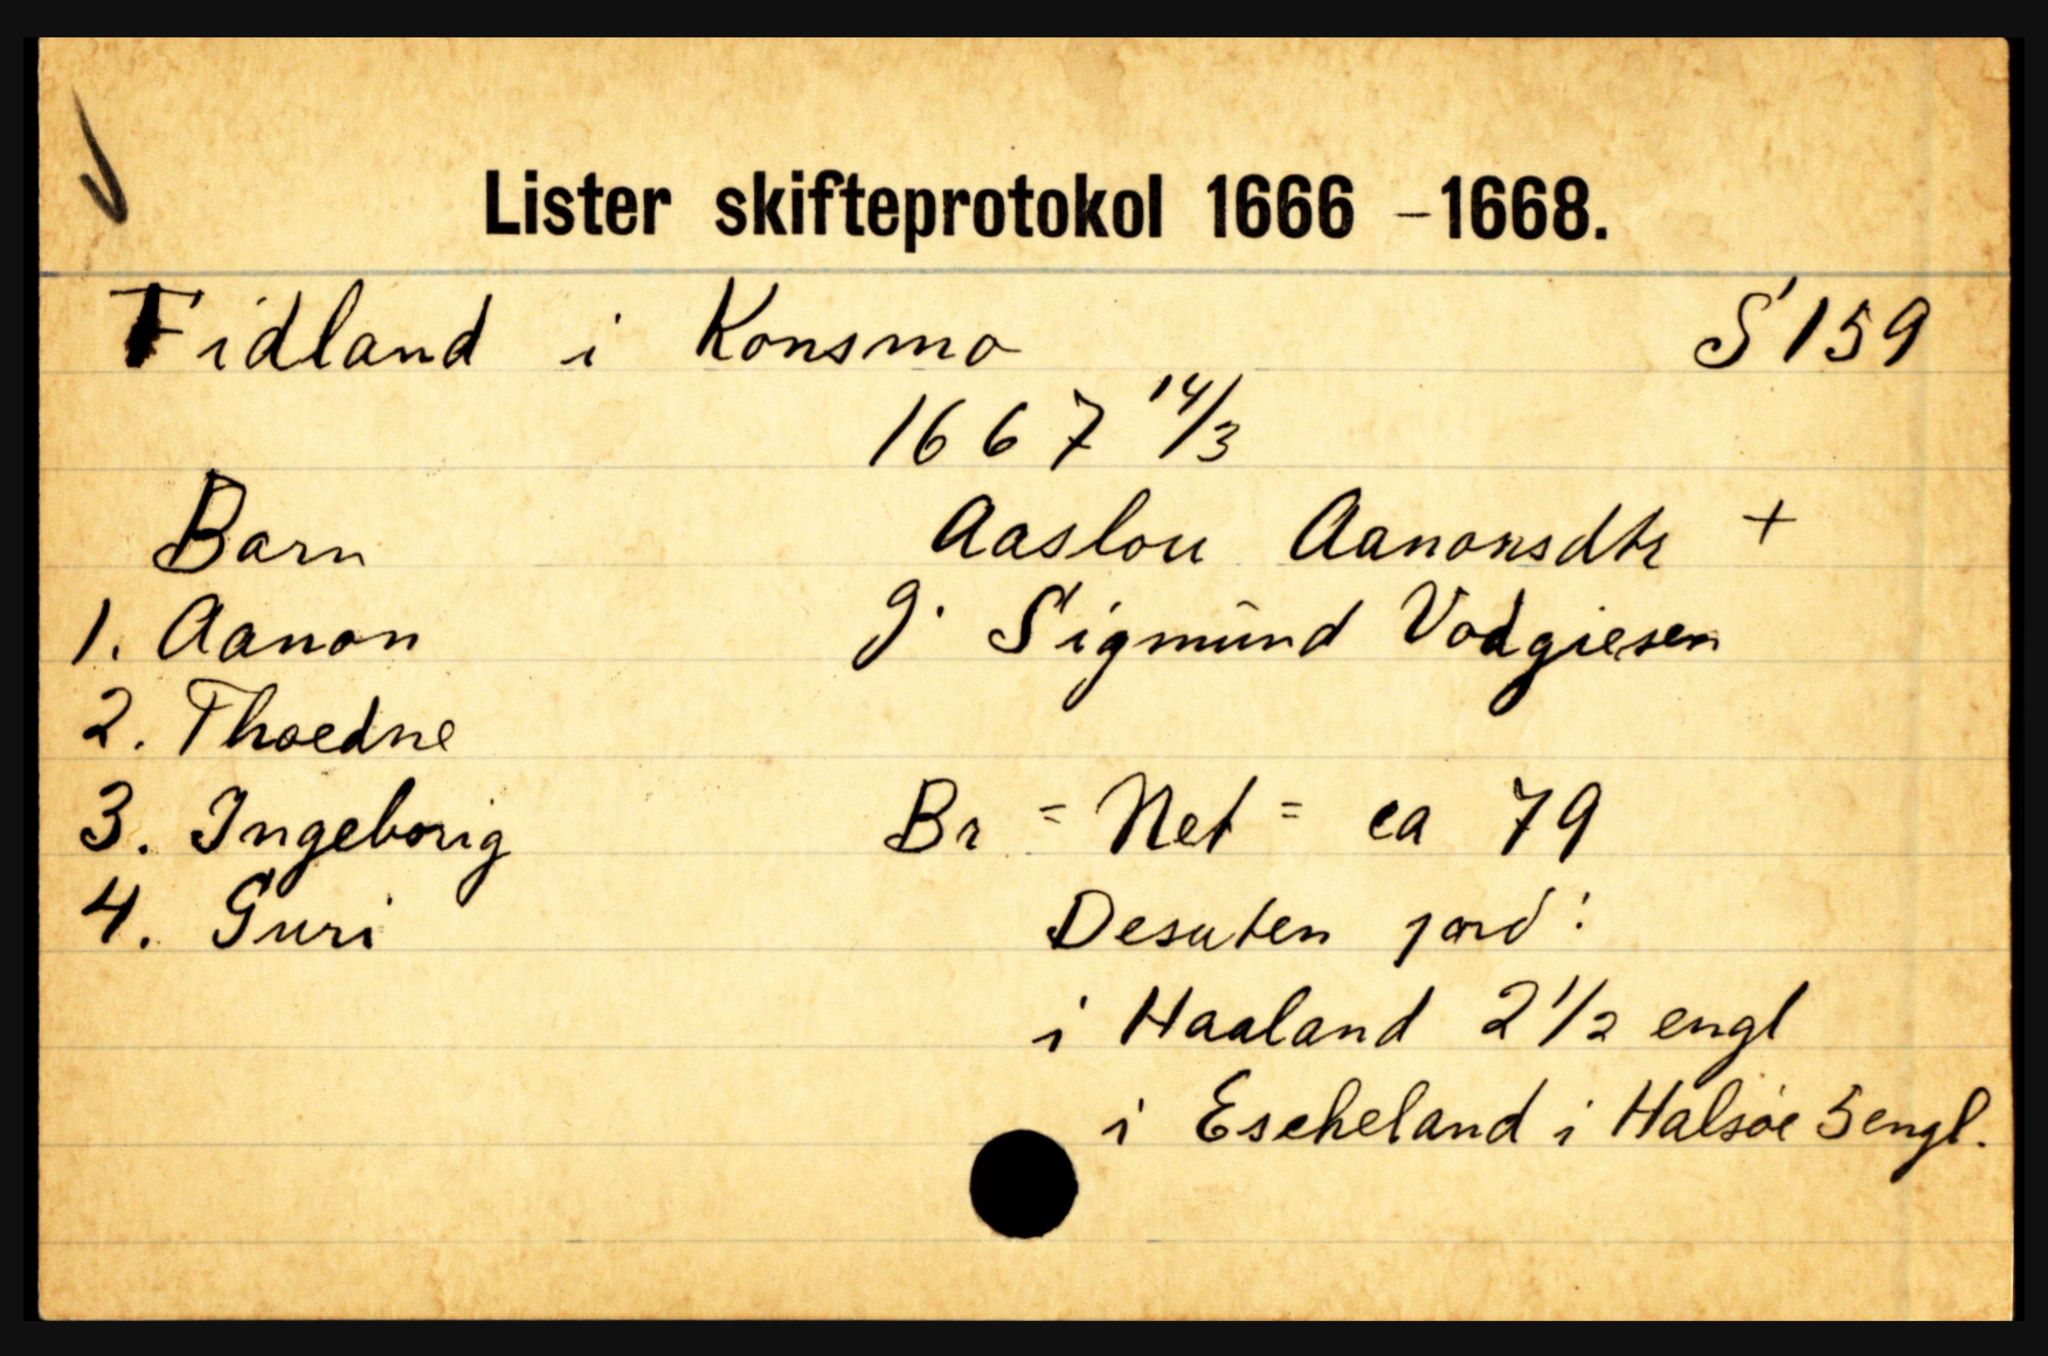 Lister skifteprotokol 1666 - 1668.
Fidland i Konsmo S 159
1667 14/3
Barn Aaslou Aanonsdtr +
1. Aanon g. Sigmund Vodgiesen
2. Thoedne
3. Ingeborig Br = Net = ca 79
4. Guri Desuten jord:
i Haaland 2 1/2 engl
i Escheland i Halsøe 5 engl.